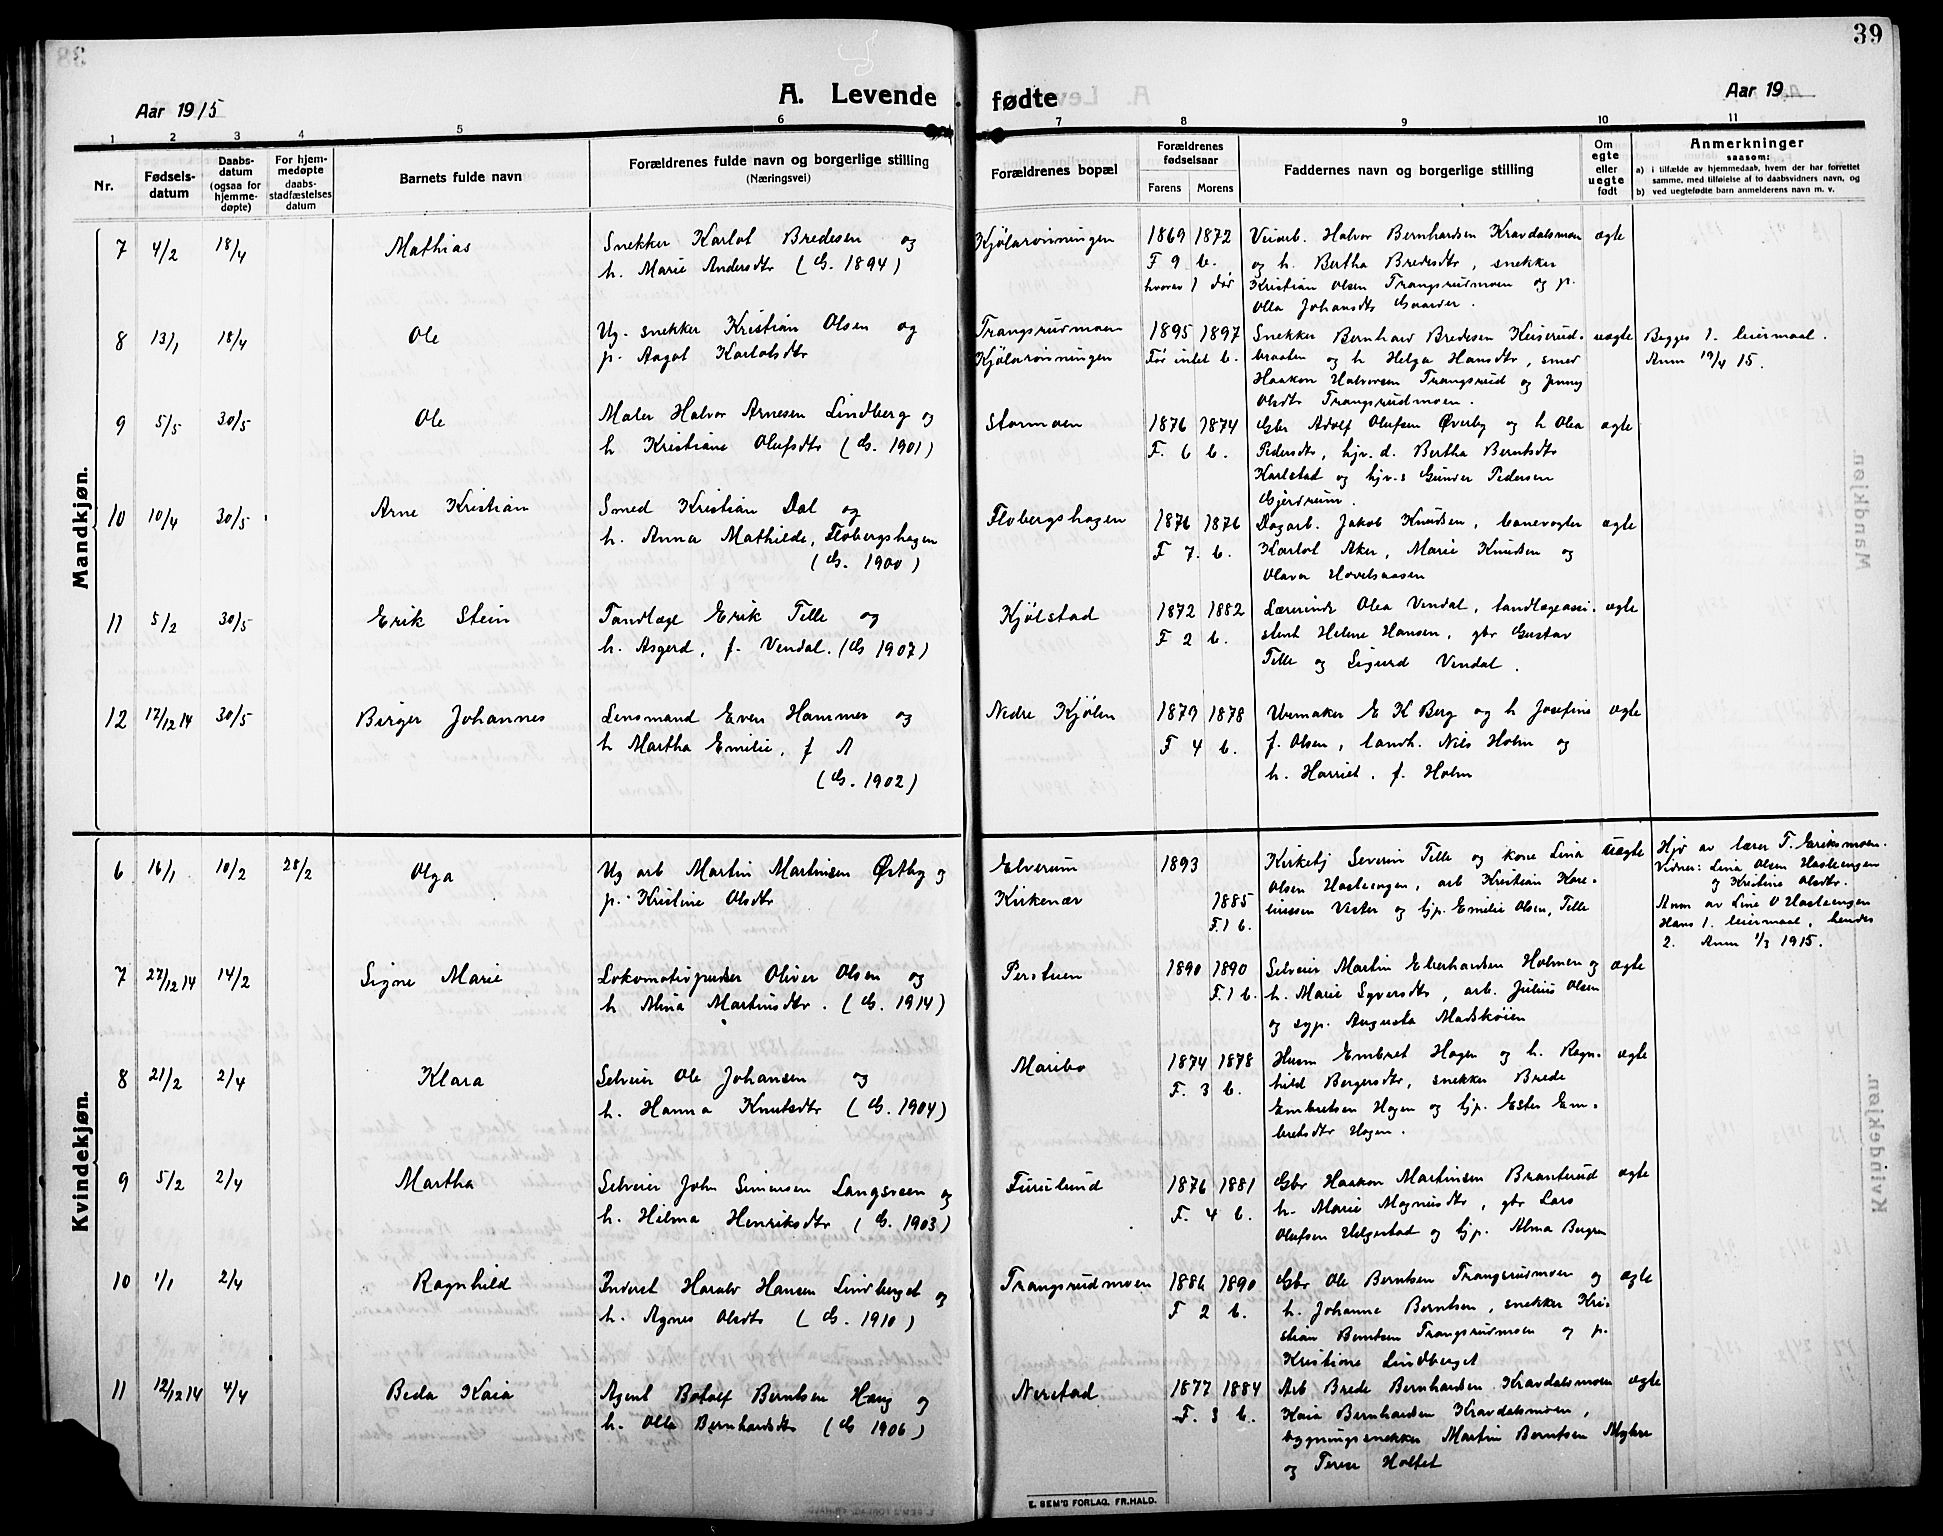 39
Aar 1915
A. Levende fødte
Aar 19
1 2 3 4 5 6 7 8 9 10 11
Nr.
Fødsels-
datum
Daabs-
datum
(ogsaa for
hjemme-
døpte)
For hjem-
medøpte
daabs-
stadfæstelses
datum
Barnets fulde navn
Forældrenes fulde navn og borgerlige stilling
(Næringsvei)
Forældrenes bopæl
Forældrenes
fødselsaar
Farens Morens
Faddernes navn og borgerlige stilling
Om
egte
eller
uegte
født
Anmerkninger
saasom:
a) i tilfælde av hjemmedaab, hvem der har forrettet
samme, med tilføielse af to daabsvidners navn, og
b) ved uegtefødte barn anmelderens navn m. v.
Mandkjøn.
7 4/2 18/4 Mathias
Snekker Karlot Bredesen og
h. Marie Andersdtr (G. 1894)
Kjølarønningen
1869 1872
F 9 b.
hvorav 1 død
Veiarb. Halvor Bernhardsen Kravdalsmoen
og h. Bertha Bredesdtr, snekker
Kristian Olsen Trangsrudmoen og p.
Olla Johansdtr Gaarder.
egte
8 13/1 18/4 Ole
Ug. snekker Kristian Olsen og
p. Aagot Karlotsdtr
Trangsrudmoen
Kjølarønningen
1895 1897
Før intet b.
Snekker Bernhard Bredesen Keiserud-
braaten og h Helga Hansdtr, smed
Haakon Halvorsen Trangsrud og Jenny
Olsdtr Trangsrudmoen.
uegte
Begges 1. leiermaal.
Anm 19/4 15.
9 5/5 30/5 Ole
Maler Halvor Arnesen Lindberg og
h Kristiane Olufsdtr (G. 1901)
Stormoen
1876 1874
F. 6 b.
Gbr Adolf Olufsen Øverby og h Olea
Pedersdtr, hjv. d. Bertha Berntsdtr
Karlstad og hjv. s Gunder Pedersen
Gjerdrum.
egte
10 10/4 30/5 Arne Kristian
Smed Kristian Dal og
h. Anna Mathilde, Flobergshagen
(G. 1900)
Flobergshagen
1876 1876
F 7. b.
Dagarb. Jakob Knudsen, banevogter
Karlot Aker, Marie Knudsen og
Olava Hovelsaasen
egte
11 5/2 30/5 Erik Stein
Tandlæge Erik Telle og
h. Asgerd, f. Vendal. (G 1907)
Kjølstad
1872 1882
F 2 b.
Lærerinde Olea Vendal, tandlægeassi-
stent Helene Hansen, gbr Gustav
Telle og Sigurd Vendal.
egte
12 17/12 14 30/5 Birger Johannes
Lensmand Even Hammer og
h Martha Emilie, f A
(G. 1902)
Nedre Kjølen
1879 1878
F 4 b.
Urmaker E K Berg og h Josefine
f. Olsen, landh. Nils Holm og
h. Harriet, f. Holm
egte
Kvindekjøn.
6 16/1 10/2 28/2 Olga
Ug arb Martin Martinsen Østby og
p. Kristine Olsdtr
Elverum
Kirkenær
1893
1885
F. 1 b.
Kirketj Severin Telle og kone Lina
Olsen Hasleengen, arb Kristian Kare-
liussen Vester og tjp. Emilie Olsen, Telle
uegte
Hjd av lærer T. Eriksmoen.
Vidner: Lina Olsen Hasleengen
og Kristine Olsdtr.
Anm av Line O Hasleengen
Hans 1. leiermaal, hendes
2. Anm 1/3 1915.
7 27/12 14 14/2 Signe Marie
Lokomotivpudser Oliver Olsen og
h Alina Martinsdtr. (G. 1914)
Perstuen
1890 1890
F. 1 b.
Selveier Martin Eberhardsen Holmen og
h. Marie Syversdtr, arb. Julius Olsen
og syp. Augusta Madskøien
egte
8 21/2 2/4 Klara
Selveier Ole Johansen og
h. Hanna Knutsdtr (G. 1904)
Maribo
1874 1878
F. 3 b.
Husm Embret Hagen og h. Ragn-
hild Bergersdtr, snekker Brede
Embretsen Hagen og tjp. Ester Em-
bretsdtr Hagen.
egte
9 5/2 2/4 Martha
Selveier John Simensen Langsveen og
h. Hilma Henriksdtr (G. 1903)
Furulund
1876 1881
F. 4 b.
Gbr Haakon Martinsen Branterud
h. Marie Magnusdtr, gbr Lars
Olufsen Helgestad og tjp. Alma Bergen
egte
10 1/1 2/4 Ragnhild
Inderst Harald Hansen Lindberget og
h. Agnes Olsdtr (G. 1910)
Trangsrudmoen
1886 1890
F 2 b.
Gbr Ole Berntsen Trangsrudmoen og
h. Johanne Berntsen, snekker Kri-
stian Berntsen Trangsrudmoen og p.
Kristiane Lindberget
egte
11 12/12 14 4/4 Beda Kaia
Agent Botolf Berntsen Haug og
h. Olla Bernhardsdtr (G 1906)
Nerstad
1877 1884
F. 3 b.
Arb Brede Bernhardsen Kravdalsmoen
Kaia Bernhardsen Kravdalsmoen,
bygningssnekker Martin Berntsen
og Terese Holtet
egte
E. SEM'S FORLAG, FR.HALD.